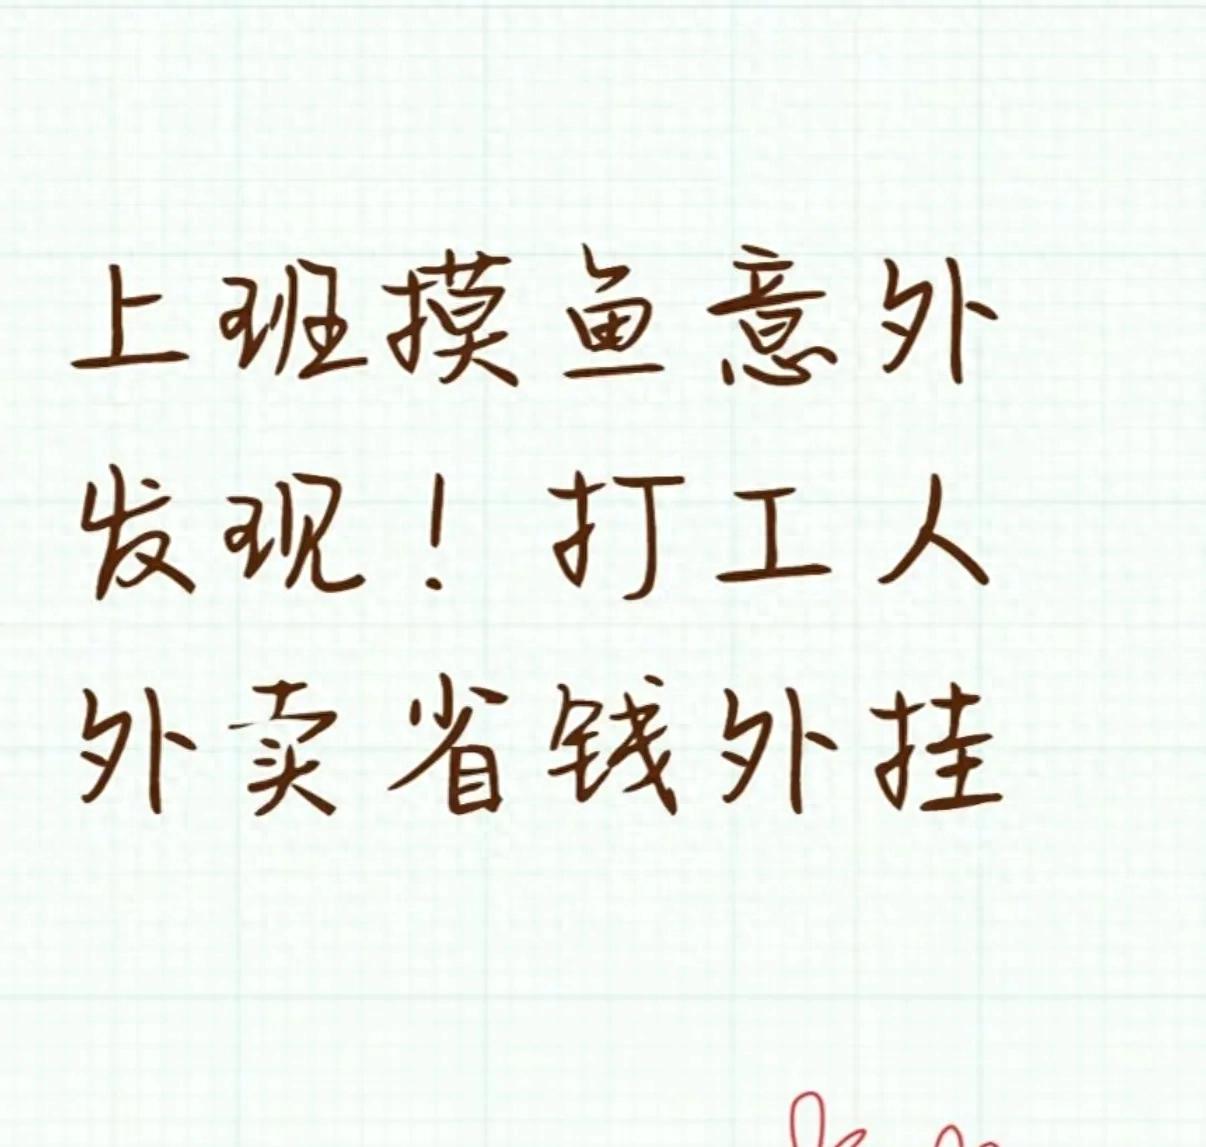 上班摸鱼意外
发现！打工人
外卖省钱外挂